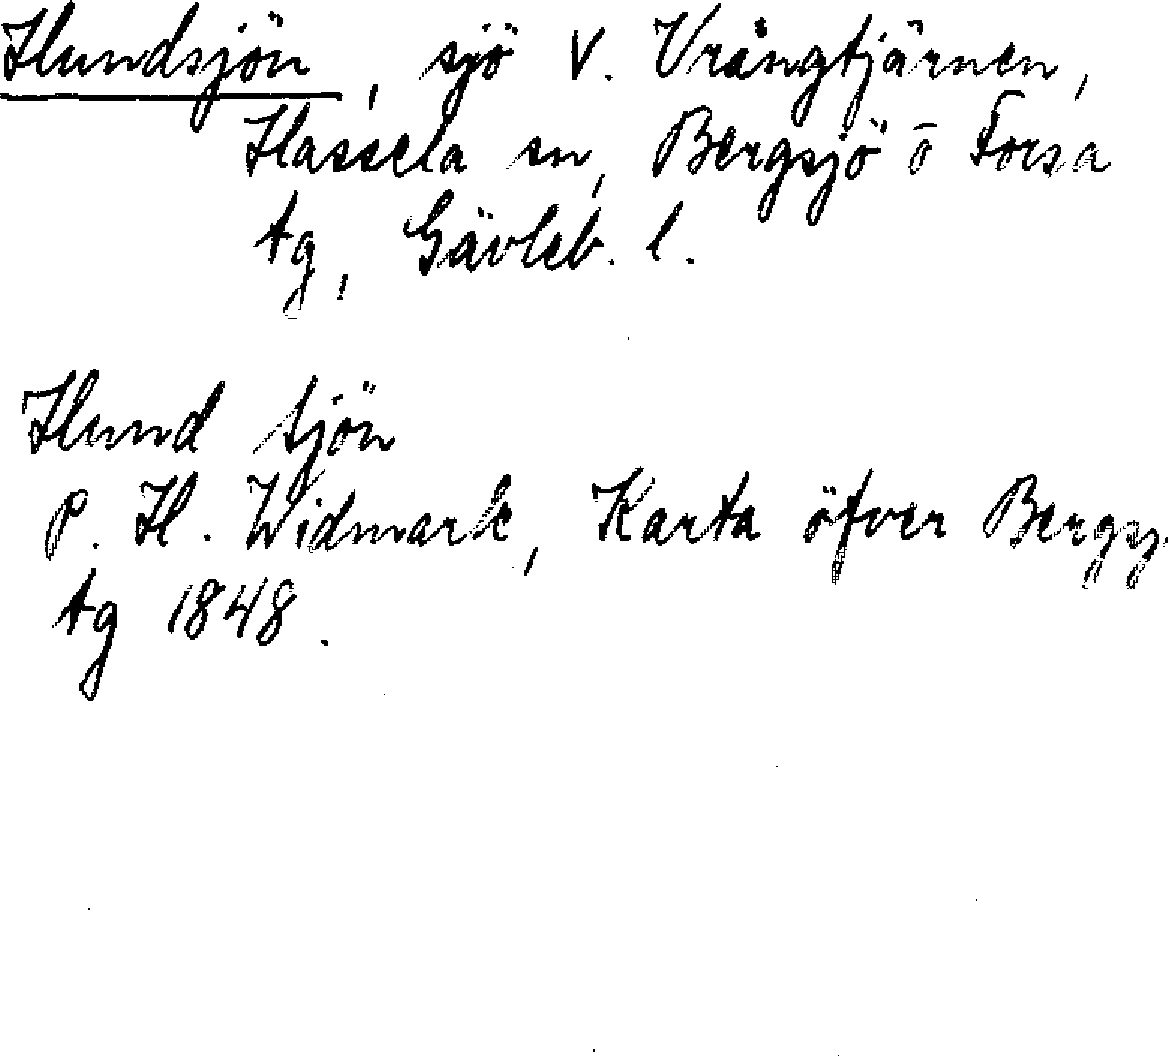 Hundsjön, sjö V. Vrångtjärnen,
Hassela sn, Bergsjö o Forsa
tg, Gävleb. l.
Hund sjön
P. H. Widmark, Karta öfver Bergsj.
tg 1848.